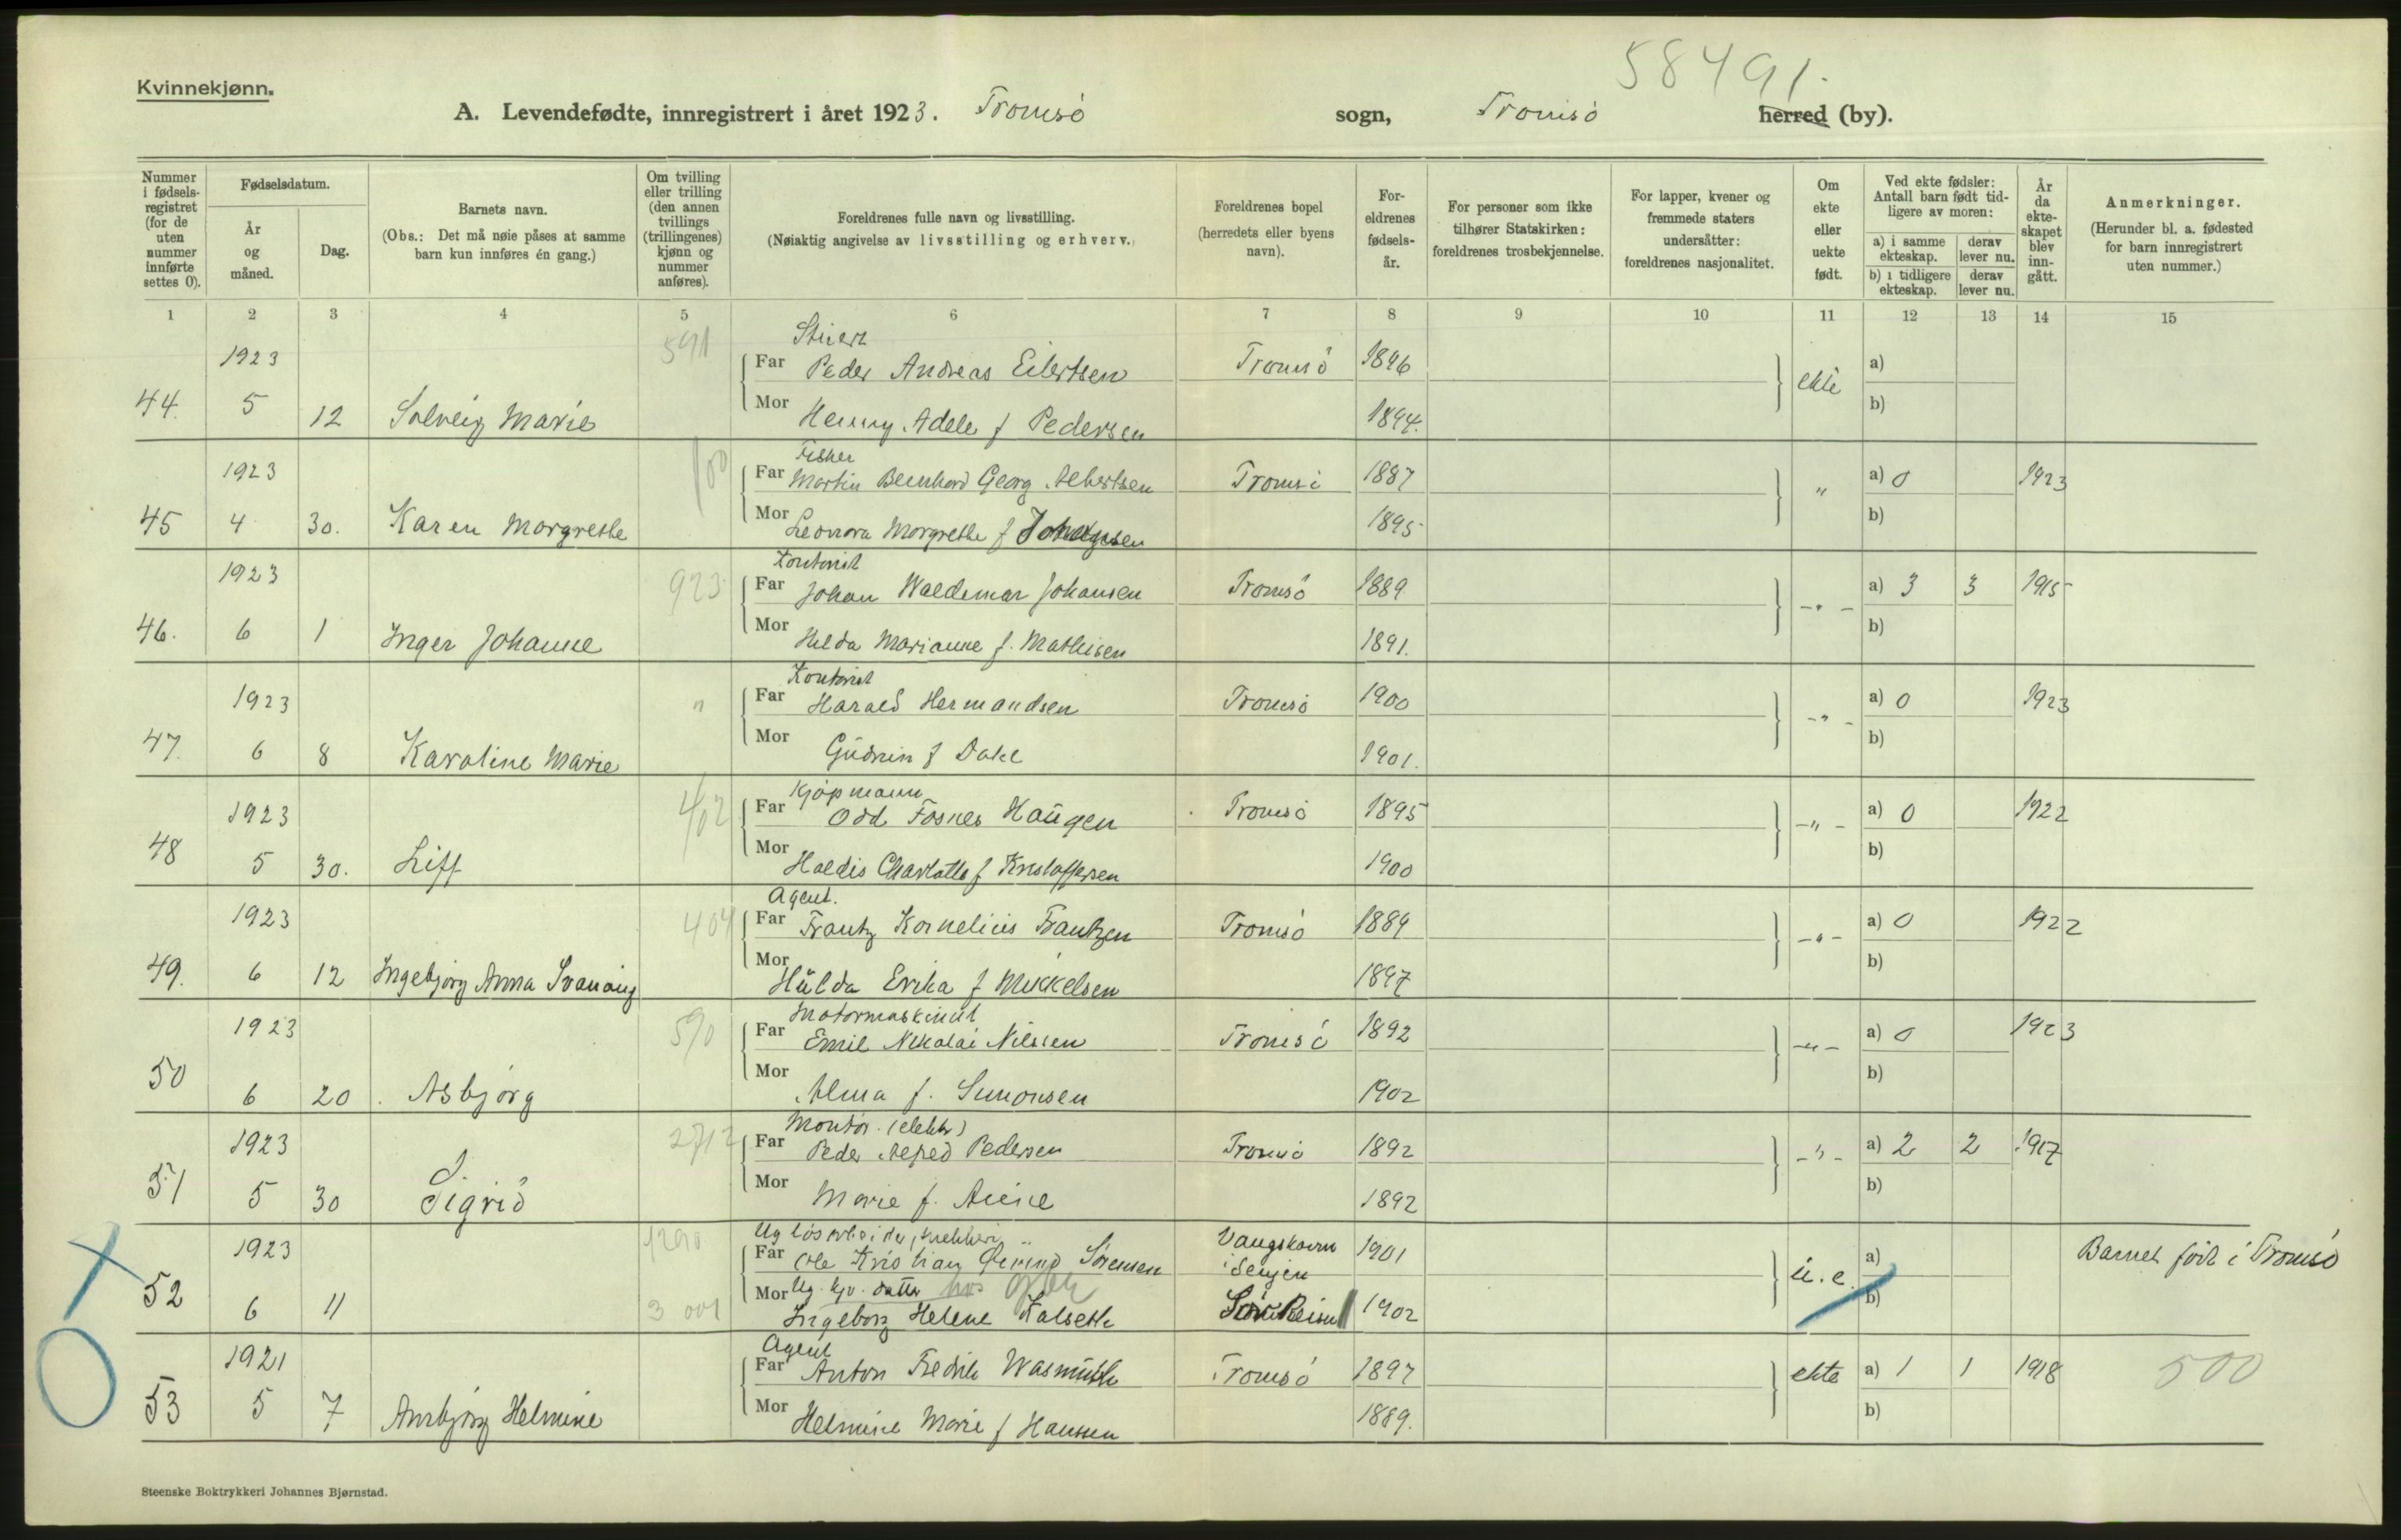 58491.
Kvinnekjønn.
A. Levendefødte, innregistrert i året 1923. Tromsö sogn, Tromsö herred (by).
Nummer i fødsels-registret (for de uten nummer innførte settes 0).
Fødselsdatum.
År og måned.
Dag.
Barnets navn.
(Obs.: Det må nøie påses at samme barn kun innføres én gang.)
Om tvilling eller trilling (den annen tvillings (trillingenes) kjønn og nummer anføres).
Foreldrenes fulle navn og livsstilling.
(Nøiaktig angivelse av livsstilling og erhverv.)
Foreldrenes bopel (herredets eller byens navn).
For-eldrenes fødsels-år.
For personer som ikke tilhører Statskirken: foreldrenes trosbekjennelse.
For lapper, kvener og fremmede staters undersåtter: foreldrenes nasjonalitet.
Om ekte eller uekte født.
Ved ekte fødsler: Antall barn født tid-ligere av moren:
a) i samme ekteskap.
derav lever nu.
b) i tidligere ekteskap.
derav lever nu.
År da ekte-skapet blev inn-gått.
Anmerkninger.
(Herunder bl. a. fødested for barn innregistrert uten nummer.)
1 2 3 4 5 6 7 8 9 10 11 12 13 14 15
591
1923 Far Peder Andreas Eilertsen Tromsö 1896 ekte a)
44. 5 12 Solveig Marie Mor Henny Adele f Pedersen 1894. b)
Fisker
1923 Far Martin Bernhard Georg Albertsen Tromsö 1887 " a) 0 1923
45 4 30. Karen Margrethe Mor Leonora Margrethe f 1895 b)
Kontorist
1923 923 Far Johan Waldemar Johansen Tromsö 1889 -"- a) 3 3 1915
46. 6 1 Inger Johanne Mor Hilda Marianne f. Mathisen 1891. b)
Kontorist
1923 " Far Harald Hermandsen Tromsö 1900 -"- a) 0 1923
47. 6 8 Karoline Marie Mor Gudrun f Dahl 1901. b)
Kjöpmann
1923 402 Far Odd Fosnes Haugen Tromsö 1895 -"- a) 0 1922
48 5 30. Liff Mor Haldis Charlotte f Kristoffersen 1900 b)
Agent.
1923 404 Far Frantz Kornelius Frantzen Tromsö 1889 -"- a) 0 1922
49. 6 12 Ingebjörg Anna Svanaug Mor Hulda Erika f Mikkelsen 1897 b)
Motormaskinist
1923 590 Far Emil Nikolai Nilssen Tromsö 1892 -"- a) 0 1923
50 6 20 Asbjörg Mor Alma f. Simonsen 1902 b)
Montör. (elektr)
1923 2712 Far Peder Alfred Pedersen Tromsö 1892 -"- a) 2 2 1917
51 5 30 Sigrid Mor Marie f. Aune 1892 b)
Ug lösarbeider,
1923 1290 Far Ole Kristian Sörensen Vangshavn i Senjen 1901 u.e. a) Barnet födt i Tromsö
Ug. hjv. datter hos
52 6 11 3 001 Mor Ingeborg Helene Kalseth 1902 b)
Agent
1921 Far Anton Fredrik Wasmuth Tromsö 1897 ekte a) 1 1 1918 500
53 5 7 Annbjörg Helmine Mor Helmine Marie f Hansen 1889. b)
Steenske Boktrykkeri Johannes Bjørnstad.